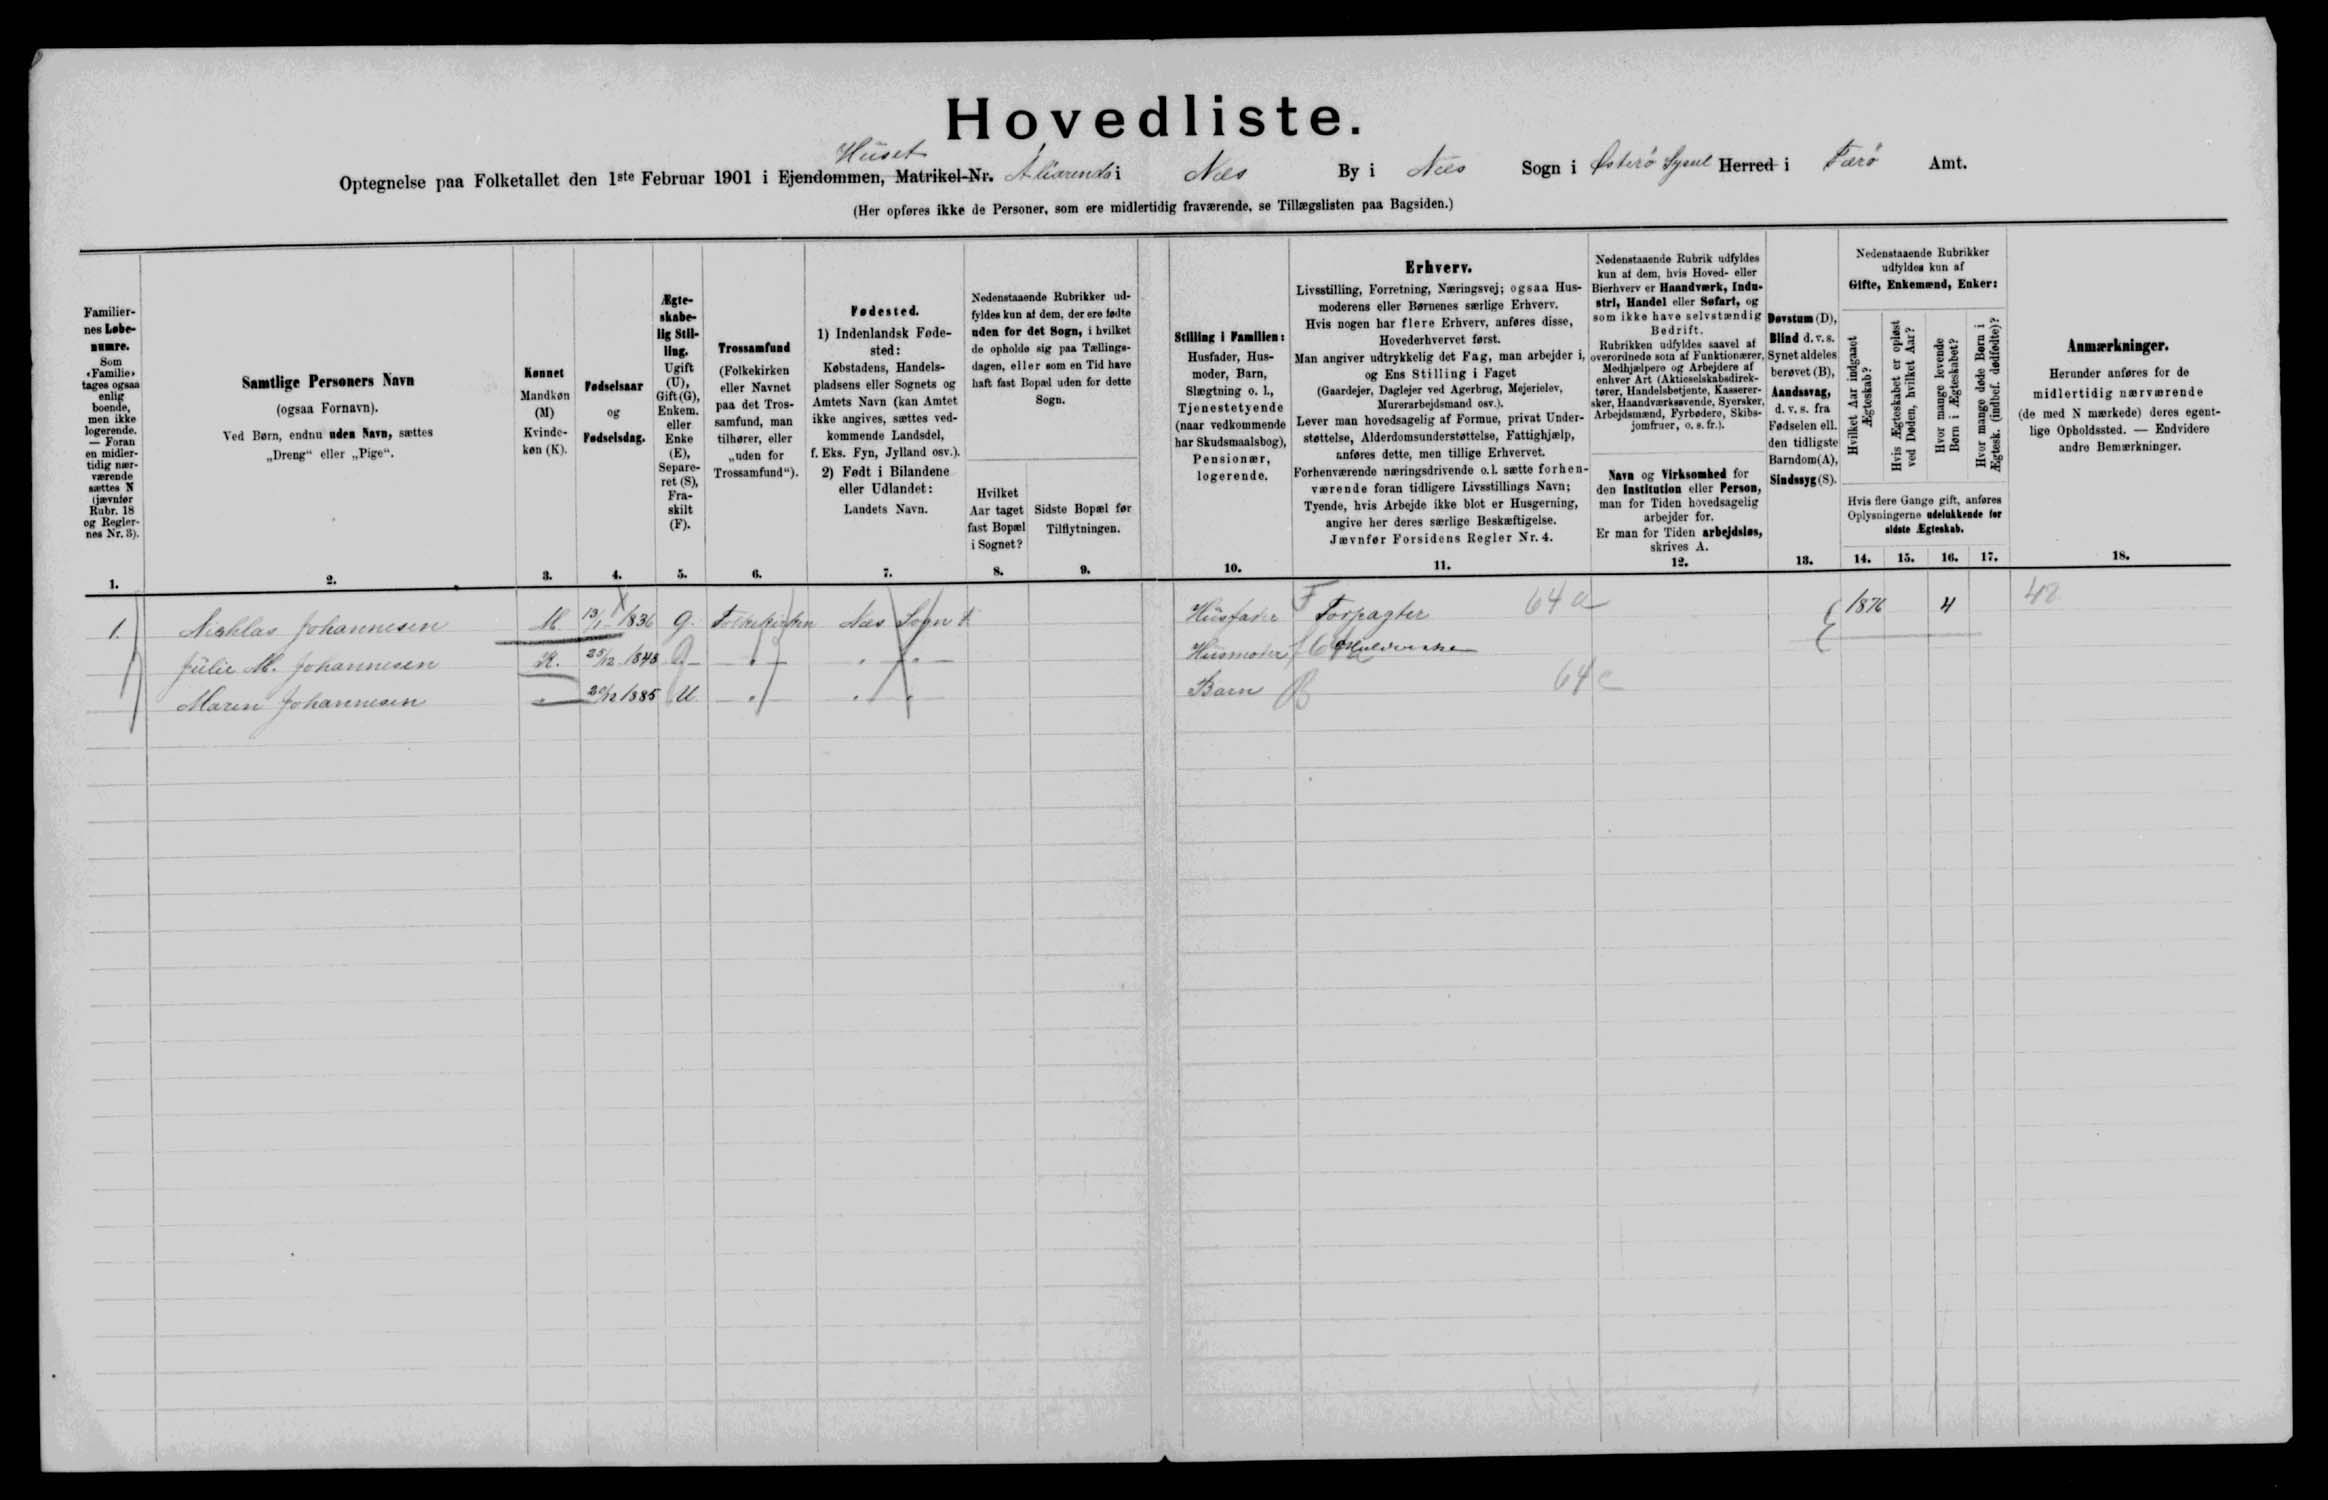 Hovedliste.
Huset
Optegnelse paa Folketallet den 1ste Februar 1901 i Ejendommen, Matrikel-Nr. i Næs By i Næs Sogn i Østerø Syssel Herred i Færø Amt.
(Her opføres ikke de Personer, som ere midlertidig fraværende, se Tillægslisten paa Bagsiden.)
Familier-
nes Løbe-
numre.
Som
‹Familie›
tages ogsaa
enlig
boende,
men ikke
logerende.
— Foran
en midler-
tidig nær-
værende
sættes N
(jævnfør
Rubr. 18
og Regler-
nes Nr. 3).
1.
Samtlige Personers Navn
(ogsaa Fornavn).
Ved Børn, endnu uden Navn, sættes
„Dreng“ eller „Pige“.
2.
Kønnet
Mandkøn
(M)
Kvinde-
køn (K).
3.
Fødselsaar
og
Fødselsdag.
4.
Ægte-
skabe-
lig Stil-
ling.
Ugift
(U),
Gift (G),
Enkem.
eller
Enke
(E),
Separe-
ret (S),
Fra-
skilt
(F).
5.
Trossamfund
(Folkekirken
eller Navnet
paa det Tros-
samfund, man
tilhører, eller
„uden for
Trossamfund“).
6.
Fødested.
1) Indenlandsk Føde-
sted:
Købstadens, Handels-
pladsens eller Sognets og
Amtets Navn (kan Amtet
ikke angives, sættes ved-
kommende Landsdel,
f. Eks. Fyn, Jylland osv.).
2) Født i Bilandene
eller Udlandet:
Landets Navn.
7.
Nedenstaaende Rubrikker ud-
fyldes kun af dem, der ere fødte
uden for det Sogn, i hvilket
de opholde sig paa Tællings-
dagen, eller som en Tid have
haft fast Bopæl uden for dette
Sogn.
Hvilket
Aar taget
fast Bopæl
i Sognet?
8.
Sidste Bopæl før
Tilflytningen.
9.
Stilling i Familien:
Husfader, Hus-
moder, Barn,
Slægtning o. l.,
Tjenestetyende
(naar vedkommende
har Skudsmaalsbog),
Pensionær,
logerende.
10.
Erhverv.
Livsstilling, Forretning, Næringsvej; ogsaa Hus-
moderens eller Børnenes særlige Erhverv.
Hvis nogen har flere Erhverv, anføres disse,
Hovederhvervet først.
Man angiver udtrykkelig det Fag, man arbejder i,
og Ens Stilling i Faget
(Gaardejer, Daglejer ved Agerbrug, Mejerielev,
Murerarbejdsmand osv.).
Lever man hovedsagelig af Formue, privat Under-
støttelse, Alderdomsunderstøttelse, Fattighjælp,
anføres dette, men tillige Erhvervet.
Forhenværende næringsdrivende o. l. sætte forhen-
værende foran tidligere Livsstillings Navn;
Tyende, hvis Arbejde ikke blot er Husgerning,
angive her deres særlige Beskæftigelse.
Jævnfør Forsidens Regler Nr. 4.
11.
Nedenstaaende Rubrik udfyldes
kun af dem, hvis Hoved- eller
Bierhverv er Haandværk, Indu-
stri, Handel eller Søfart, og
som ikke have selvstændig
Bedrift.
Rubrikken udfyldes saavel af
overordnede som af Funktionærer,
Medhjælpere og Arbejdere af
enhver Art (Aktieselskabsdirek-
tører, Handelsbetjente, Kasserer-
sker, Haandværkssvende, Syersker,
Arbejdsmænd, Fyrbødere, Skibs-
jomfruer, o. s. fr.).
Navn og Virksomhed for
den Institution eller Person,
man for Tiden hovedsagelig
arbejder for.
Er man for Tiden arbejdsløs,
skrives A.
12.
Døvstum (D),
Blind d. v. s.
Synet aldeles
berøvet (B),
Aandssvag,
d. v. s. fra
Fødselen ell.
den tidligste
Barndom (A),
Sindssyg (S).
13.
Nedenstaaende Rubrikker
udfyldes kun af
Gifte, Enkemænd, Enker:
Hvilket Aar indgaaet
Ægteskab?
Hvis Ægteskabet er opløst
ved Døden, hvilket Aar?
Hvor mange levende
Børn i Ægteskabet?
Hvor mange døde Børn i
Ægtesk. (indbef. dødfødte)?
Hvis flere Gange gift, anføres
Oplysningerne udelukkende for
sidste Ægteskab.
14. 15. 16. 17.
Anmærkninger.
Herunder anføres for de
midlertidig nærværende
(de med N mærkede) deres egent-
lige Opholdssted. — Endvidere
andre Bemærkninger.
18.
1. Nicklas Johannesen M. 13/1 1836 G. Folkekirken Næs Sogn Husfader F Forpagter 64 a 1876 4 48
Julie M. Johannesen K. 25/12 1848 G - " - " " - Husmoder
Maren Johannesen " 20/12 1885 U - " - " " Barn B 64 c